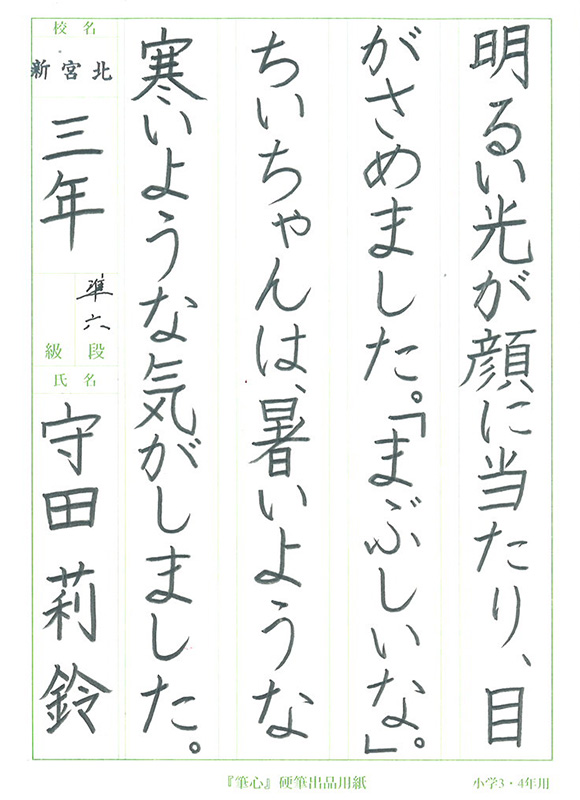 明るい光が顔に当たり、目
がさめました。「まぶしいな」。
ちいちゃんは、暑いような
寒いような気がしました。
校名
新宮北
三年
準六
級段
氏名
守田莉鈴
『筆心』硬筆出品用紙
小学3・4年用